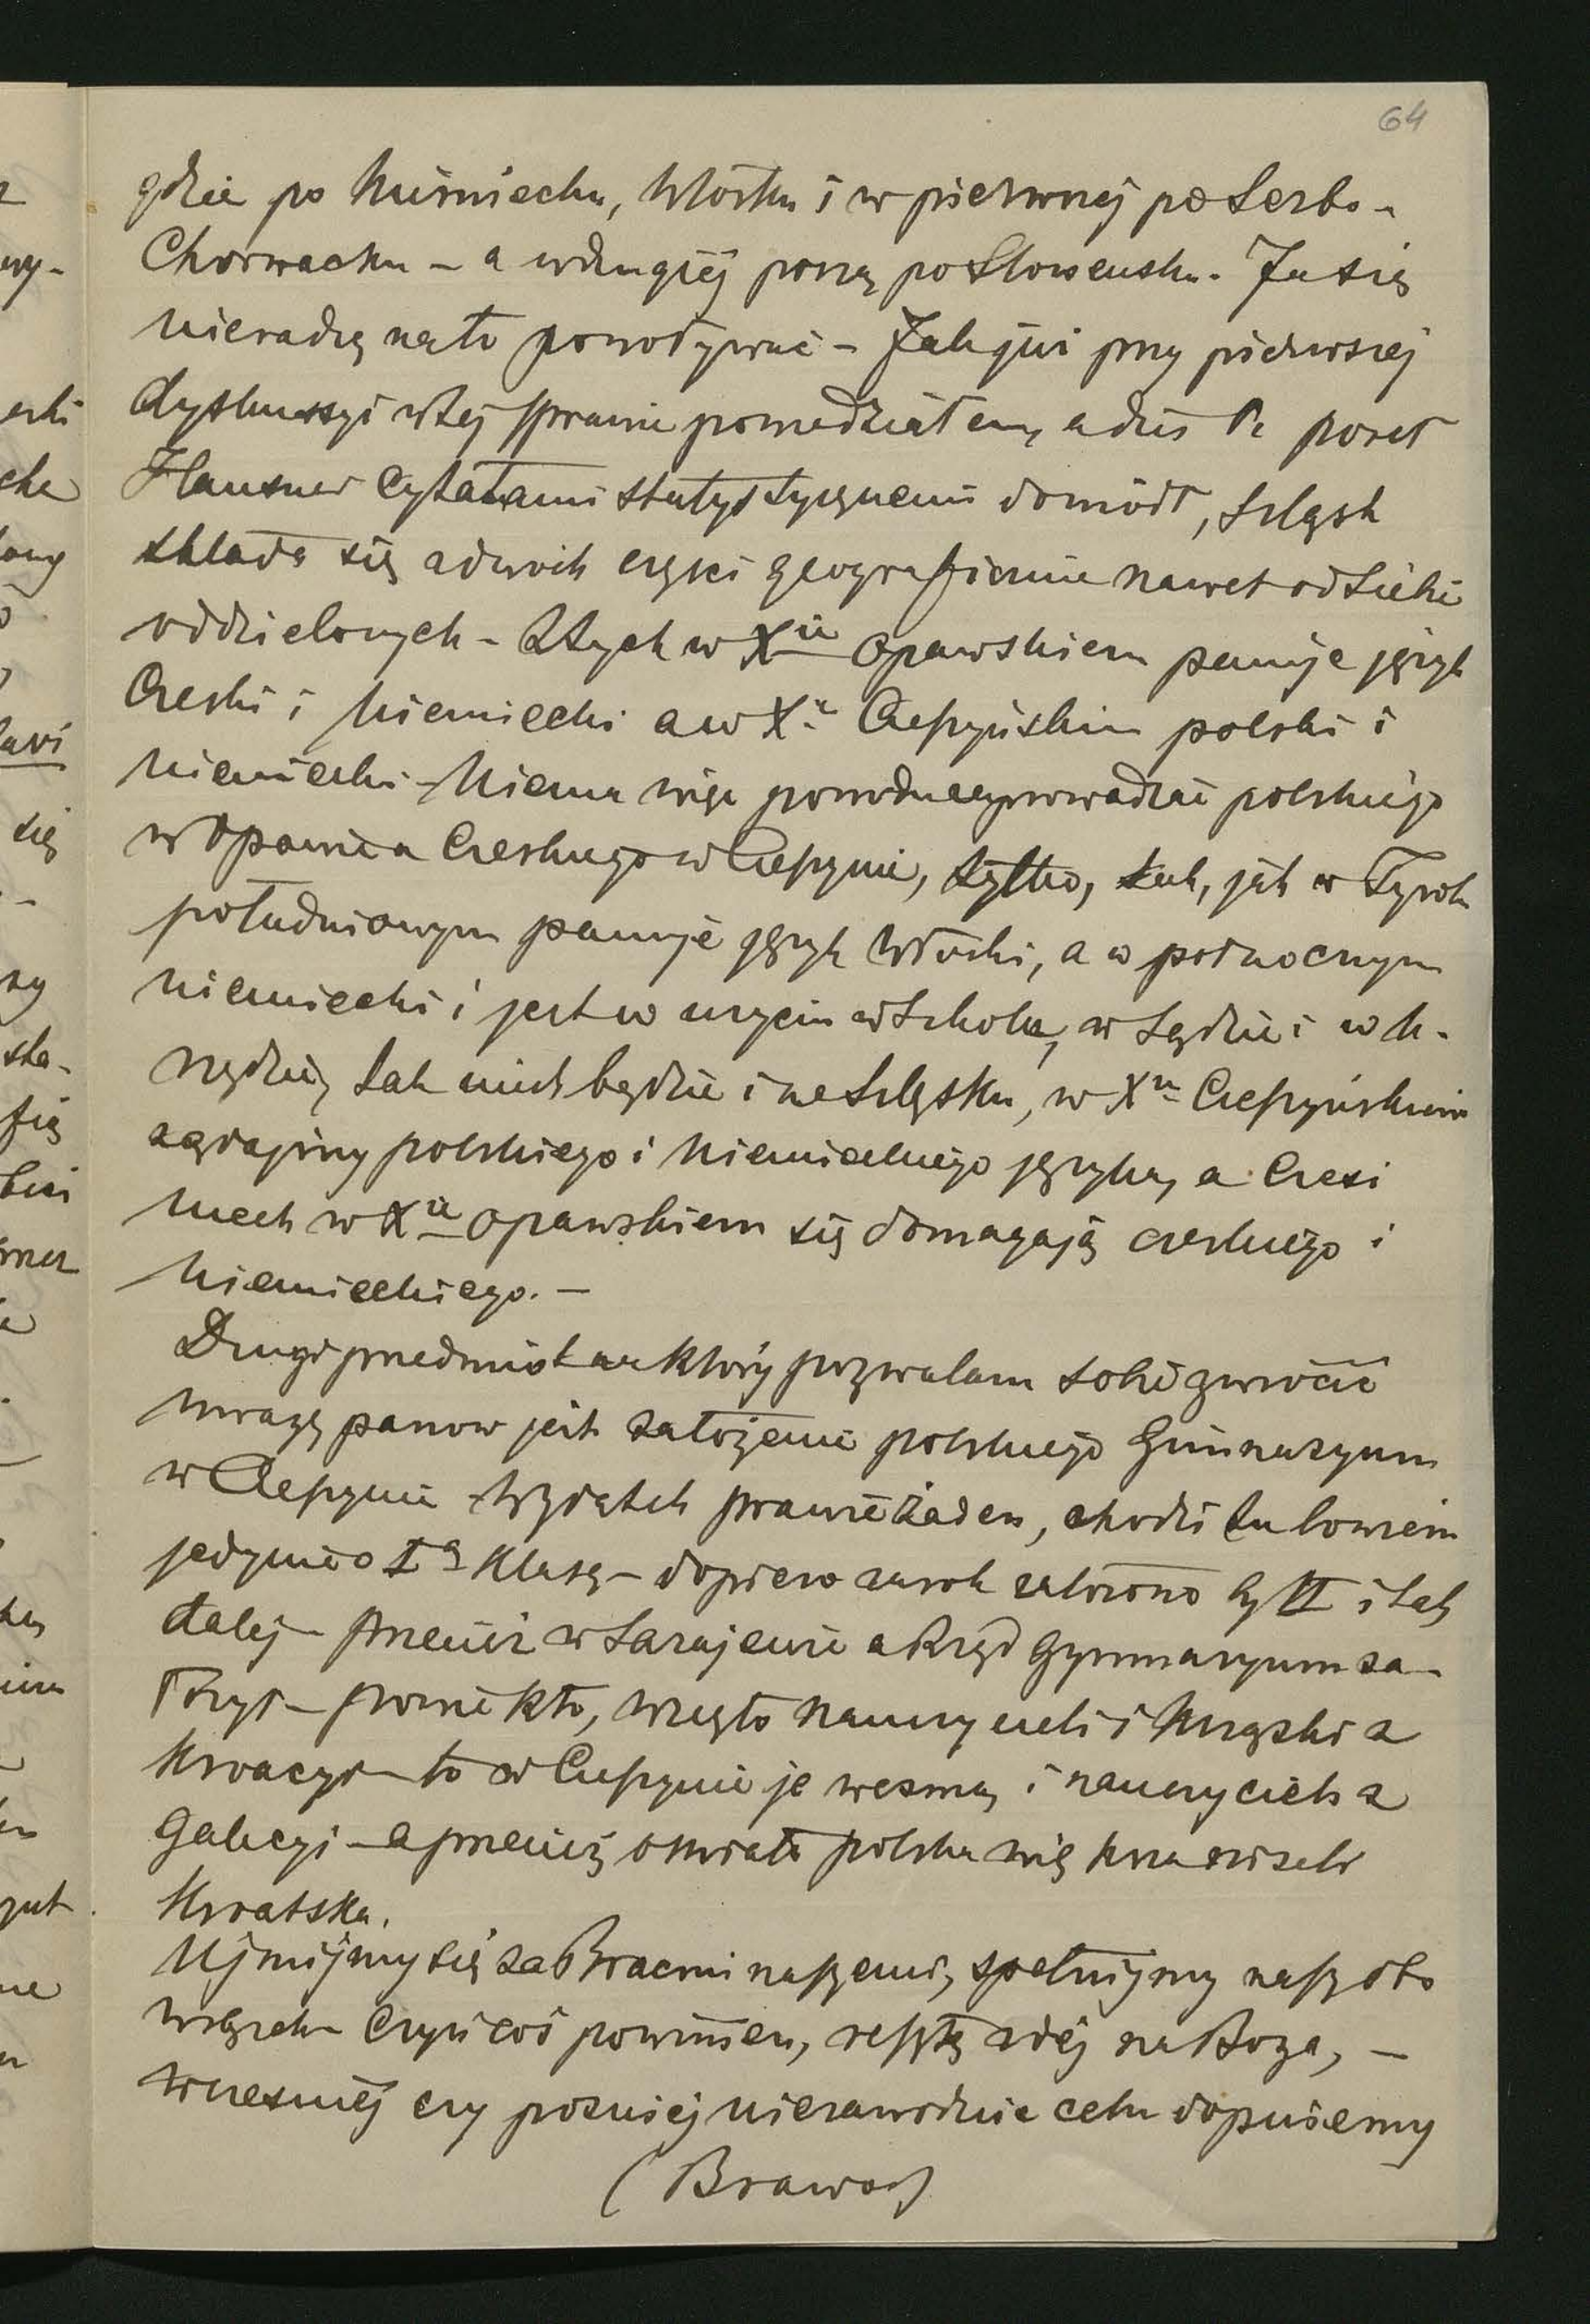 64
gdzie po Niemiecku, Włosku i w pierwszej po Serbo-
Chorwacku – a w drugiej poczę po Słoweńsku. Ja się
nieradzę na to powoływać – Jak już przy pierwszej
dyskussyi w tej sprawie powiedziałem, a dziś P. poseł
Hausner cytatami statystycznemi dowiódł, Szląsk
składa się z dwóch części geograficznie nawet od siebie
oddzielonych – Z tych w Xie Opawskiem panuje język
Czeski i Niemiecki a w Xie Cieszyńskim polski i
niemiecki – Niema więc powodu zaprowadzać polskiego
w Opawie a Czeskiego w Cieszynie, tylko, tak, jak w Tyrolu
południowym panuje język Włoski, a w północnym
niemiecki i jest w użyciu w szkole, w sądzie i w u-
rzędzie, tak niech będzie i na Szląsku, w Xie Cieszyńskiem
żądajmy polskiego i niemieckiego języka, a Czesi
niech w Xie Opawskiem się domagają czeskiego i
Niemieckiego. –
Drugi przedmiot na który pozwalam sobie zwrócić
uwagę panow jest założenie polskiego Gimnazyum
w Cieszynie – Wydatek prawie żaden, chodzi tu bowiem
jedynie o Ią klasę – dopiero za rok założono by II i tak
dalej – przecież w Sarajewie a Rząd Gymnazyum za-
łożył – powie kto, wzięto nauczycieli i książki z
Kroacyi – to w Cieszynie je wezmą i nauczycieli z
Galicyi – a przecież oświata polska większa niżeli
Kroatska.
Ujmijmy się za Braćmi naszemi, spełnijmy nasz obo
wiązek – Czyń coś powinien, resztę zdej na Boga, –
wcześniej czy pozniej niezawodnie celu dopniemy
(Brawo)